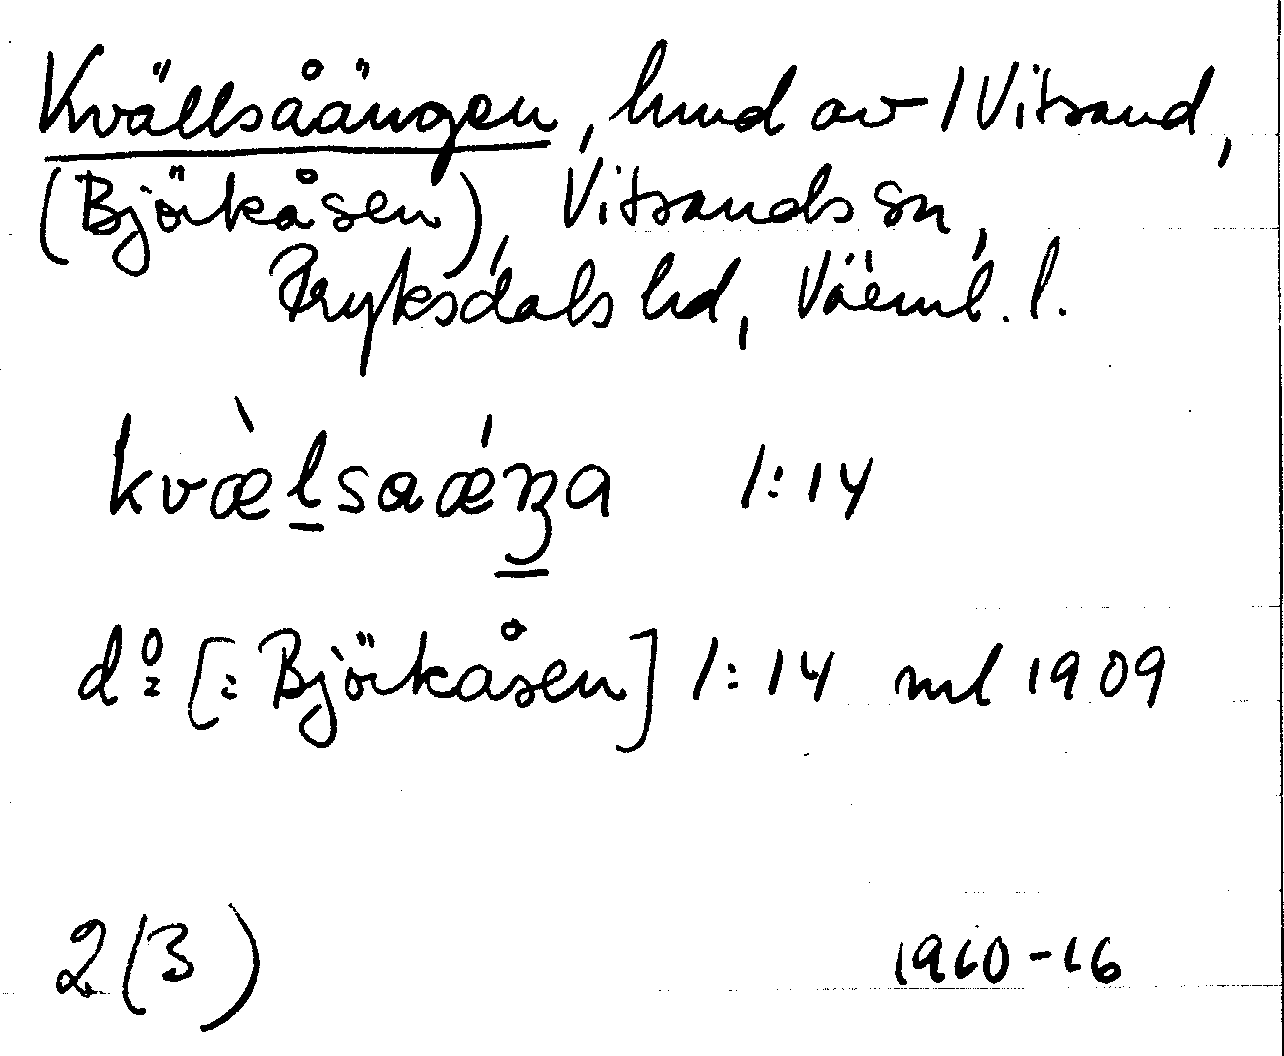 Kvällsåängen, hmd av 1 Vitsand,
(Björkåsen), Vitsands sn,
Fryksdals hd, Värml. l.
kvæ̀lsaǽŋa 1:14
do [: Björkåsen] 1:14 ml 1909
2(3) 1960-66